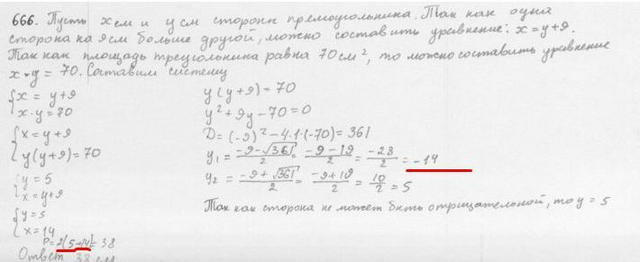 666. Пусть x см и y см стороны прямоугольника. Так как одна
сторона на 9см больше другой, можно составить уравнение: x = y+9.
Так как площадь треугольника равна 70 см², то можно составить уравнение
x·y = 70. Составим систему
{x = y+9
{x·y = 70
{x = y+9
{y(y+9) = 70
{y = 5
{x = y+9
{y = 5
{x = 14
P = 2(5+14) = 38
Ответ 38 см
y(y+9) = 70
y² + 9y - 70 = 0
D = (-9)² - 4·1·(-70) = 361
y₁ = (-9-√361)/2 = (-9-19)/2 = -28/2 = -14
y₂ = (-9+√361)/2 = (-9+19)/2 = 10/2 = 5
Так как сторона не может быть отрицательной, то y = 5